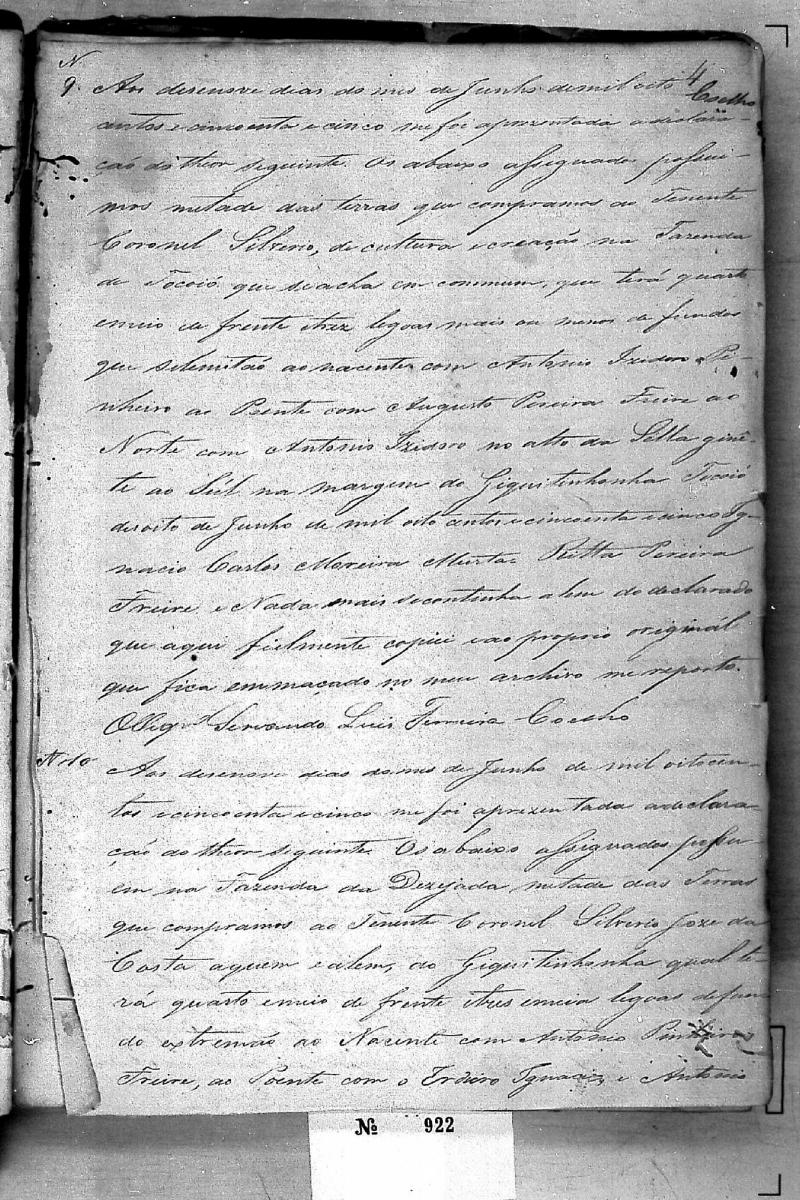 N.
9. Aos desenove dias do mes de Junho de mil oito
4
Coelho
centos e cincoenta e cinco me foi aprezentada a declara-
ção do theor seguinte. Os abaixo assignado possui-
mos metade das terras que compramos ao Tenente
Coronel Silverio, de cultura e creação na Fazenda
de Tocoió que se acha em commum, que terá quarto
e meio de frente e trez legoas mais ou menos de fundos
que se lemitão ao nacente com Antonio Izidoro Pi-
nheiro ao Poente com Augusto Pereira Freire ao
Norte com Antonio Izidoro no alto da Sella ginê-
te ao Sul na margem do Giquitinhonha Tocoió
desoito de Junho de mil oito centos e cincoenta e cinco Ig-
nacio Carlos Moreira Murta. Ritta Pereira
Freire e Nada mais se continha alem do declarado
que aqui fielmente copiei e ao proprio original
que fica emmaçado no meu archivo me reporto.
O Servando Luis Ferreira Coelho
N. 10 Aos desenove dias do mes de Junho de mil oitocen-
tos e cincoenta e cinco me foi aprezentada a declara-
ção do theor seguinte. Os abaixo assignados possu-
em na Fazenda da Dezejada metade das Terras
que compramos ao Tenente Coronel Silverio Joze da
Costa aquem e alem, do Giquitinhonha qual te-
rá quarto e meio de frente e tres e meia legoas de fun-
do extremão ao Nacente com Antonio Pinheiro
Freire, ao Poente com o Ignacio e Antonio
Nº 922